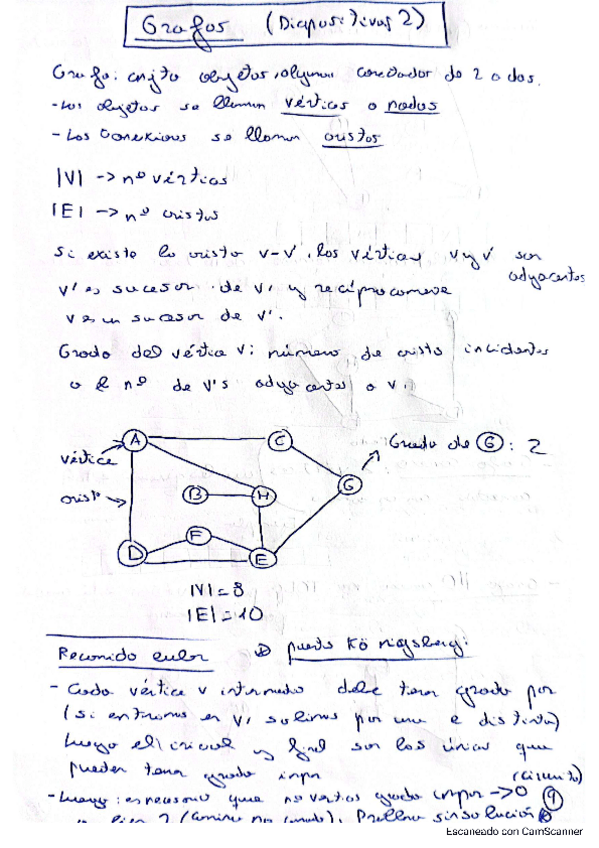 Grafos (Diapositivas 2)
Grafo: cnjto objetos, algunos conectados de 2 a dos.
- Los objetos se llaman vértices o nodos
- Las conexiones se llaman aristas
|V| -> nº vértices
|E| -> nº aristas
Si existe la arista v-v', los vértices v y v' son adyacentes
v' es sucesor de v, y recíprocamente
v es un sucesor de v'.
Grado del vértice v: número de aristas incidentes
o el nº de v's adyacentes a v.
A
C
Grado de G: 2
vértice
G
arista
B
H
F
D
E
|V| = 8
|E| = 10
Recorrido euler
puente Königsberg:
- Cada vértice v intermedio debe tener grado par
(si entramos en v, salimos por una e distinta)
luego el inicial y final son los únicos que
pueden tener grado impar
(circuito)
- luego: es necesario que nº vertices grado impar -> 0
9
Escaneado con CamScanner